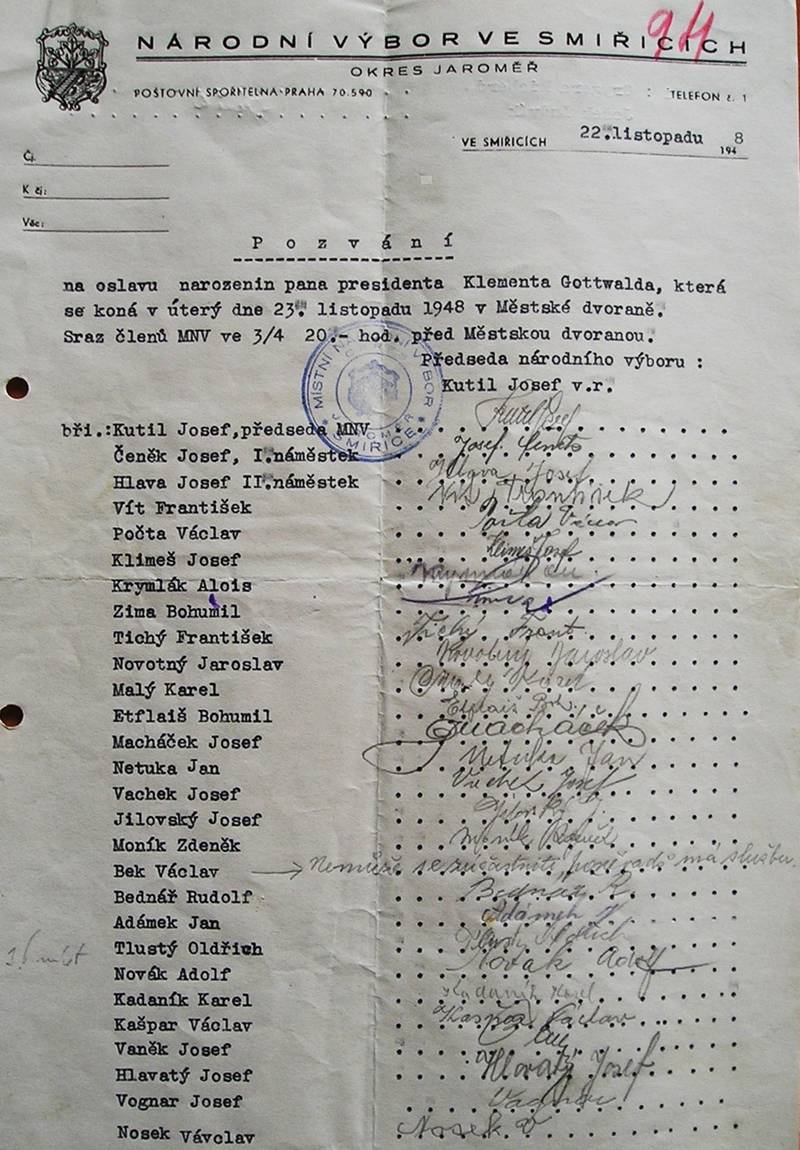 911
NÁRODNÍ VÝBOR VE SMIŘICÍCH
OKRES JAROMĚŘ
POŠTOVNÍ SPOŘITELNA-PRAHA 70.590
TELEFON č. 1
VE SMIŘICÍCH 22.listopadu 1948
Čj.
K čj:
Věc:
P o z v á n í
na oslavu narozenin pana presidenta Klementa Gottwalda, která
se koná v úterý dne 23. listopadu 1948 v Městské dvoraně.
Sraz členů MNV ve 3/4 20.- hod. před Městskou dvoranou.
Předseda národního výboru :
Kutil Josef v.r.
MÍSTNÍ NÁRODNÍ VÝBOR SMIŘICE
bři.:Kutil Josef,předseda MNV
Čeněk Josef, I.náměstek
Hlava Josef II.náměstek Hlava Josef
Vít František
Počta Václav
Klimeš Josef Klimeš Josef
Krymlák Alois
Zima Bohumil
Tichý František Tichý Frant.
Novotný Jaroslav Novotný Jaroslav
Malý Karel
Etflaiš Bohumil
Macháček Josef Macháček
Netuka Jan Netuka Jan
Vachek Josef Vachek Josef
Jilovský Josef
Moník Zdeněk
Bek Václav Nemůže se zúčastniti, má službu.
Bednář Rudolf Bednář R.
Adámek Jan Adámek J.
Tlustý Oldřich
Novák Adolf Novák Adolf
Kadaník Karel Kadaník Karel
Kašpar Václav Kašpar Václav
Vaněk Josef
Hlavatý Josef Hlavatý Josef
Vognar Josef
Nosek Vávclav Nosek V